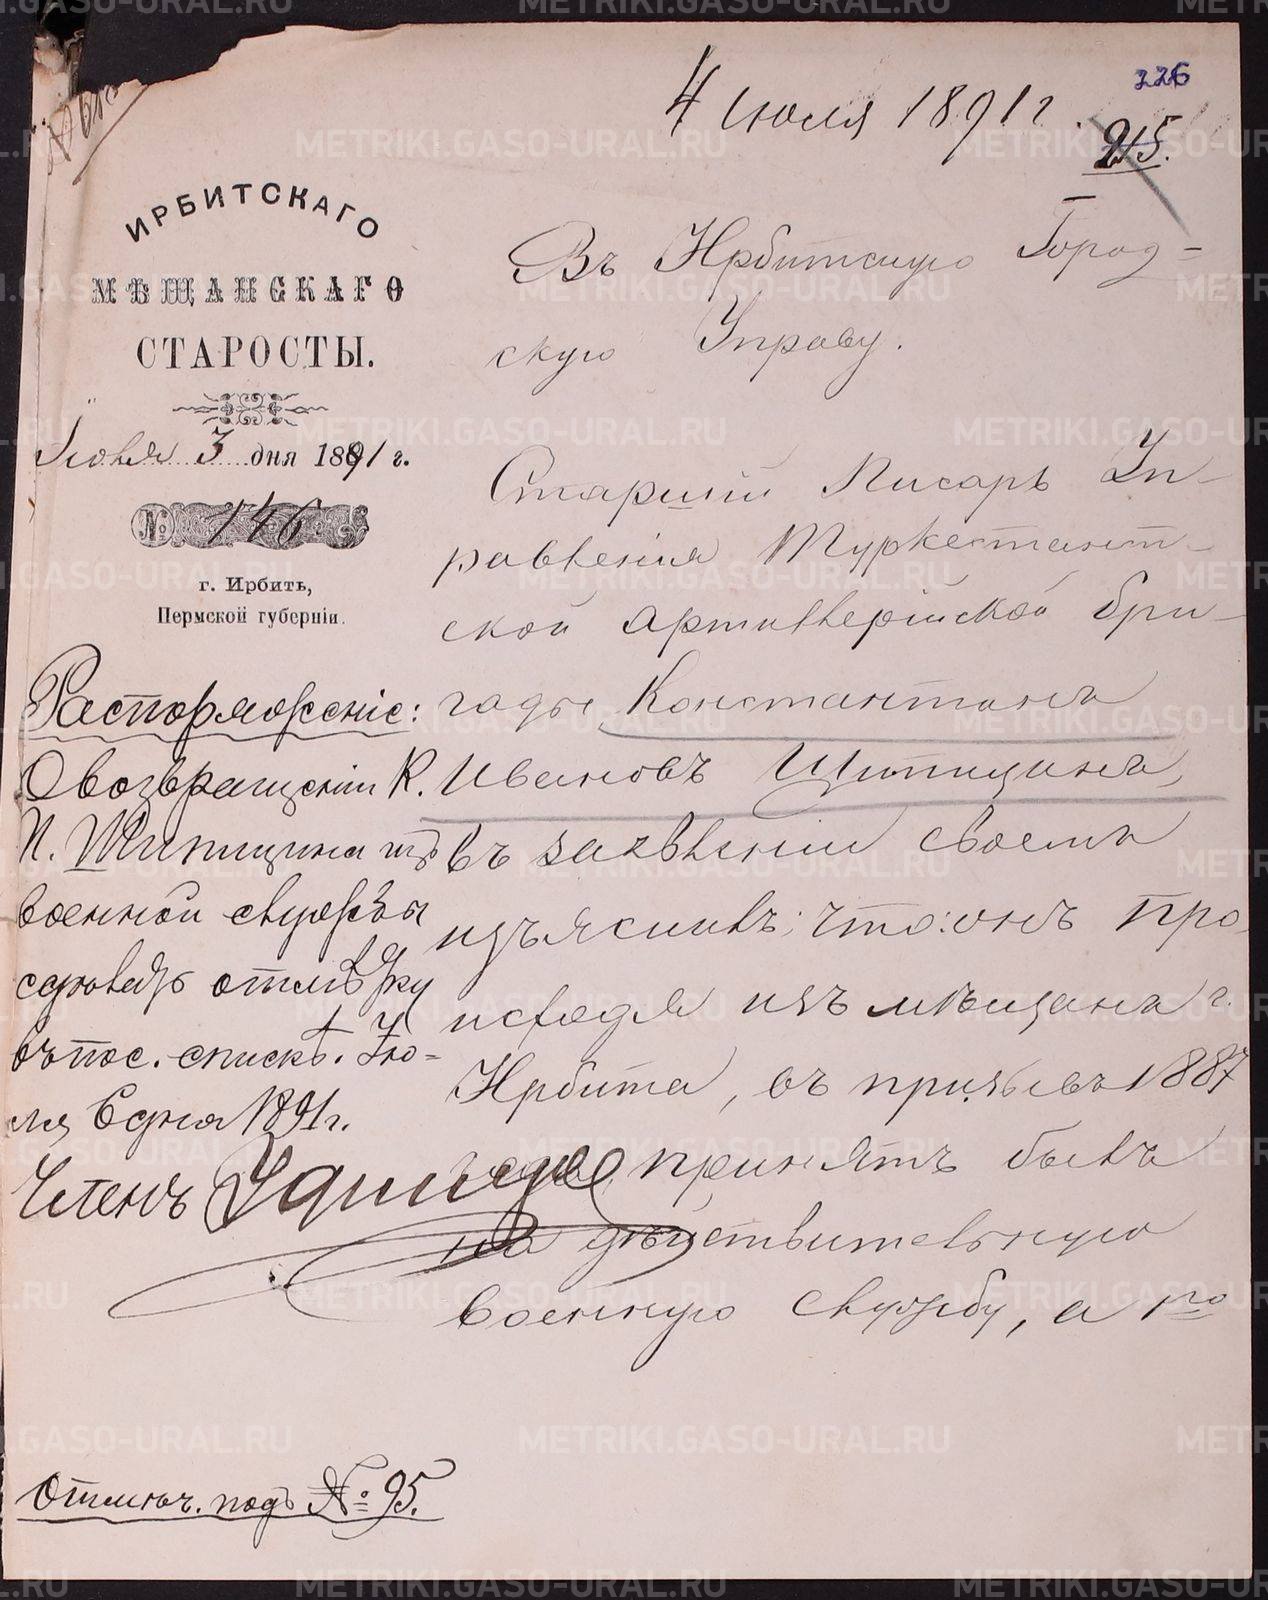 226
4 июля 1891 г.
215.
ИРБИТСКАГО
МѢЩАНСКАГО
СТАРОСТЫ.
Июня 3 дня 1891 г.
№ 146
г. Ирбить,
Пермской губерніи.
Въ Ирбитскую Город-
скую Управу.
Старшій Писарь Уп-
равленія Туркестант-
ской Артиллерійской бри-
гады Константинъ
Ивановъ Шипицинъ,
въ заявленіи своемъ
изъяснивъ; что: онъ про
исходя изъ мѣщанъ г.
Ирбита, въ призывъ 1887
года принятъ былъ
на дѣйствительную
военную службу, а 1го
Распоряженіе:
О возвращеніи К.
И. Шипицина изъ
военной службы
сдѣлать отмѣтку
въ пос. спискѣ. Ию-
ля 6 дня 1891 г.
Членъ
Отмѣч. подъ № 95.
METRIKI.GASO-URAL.RU